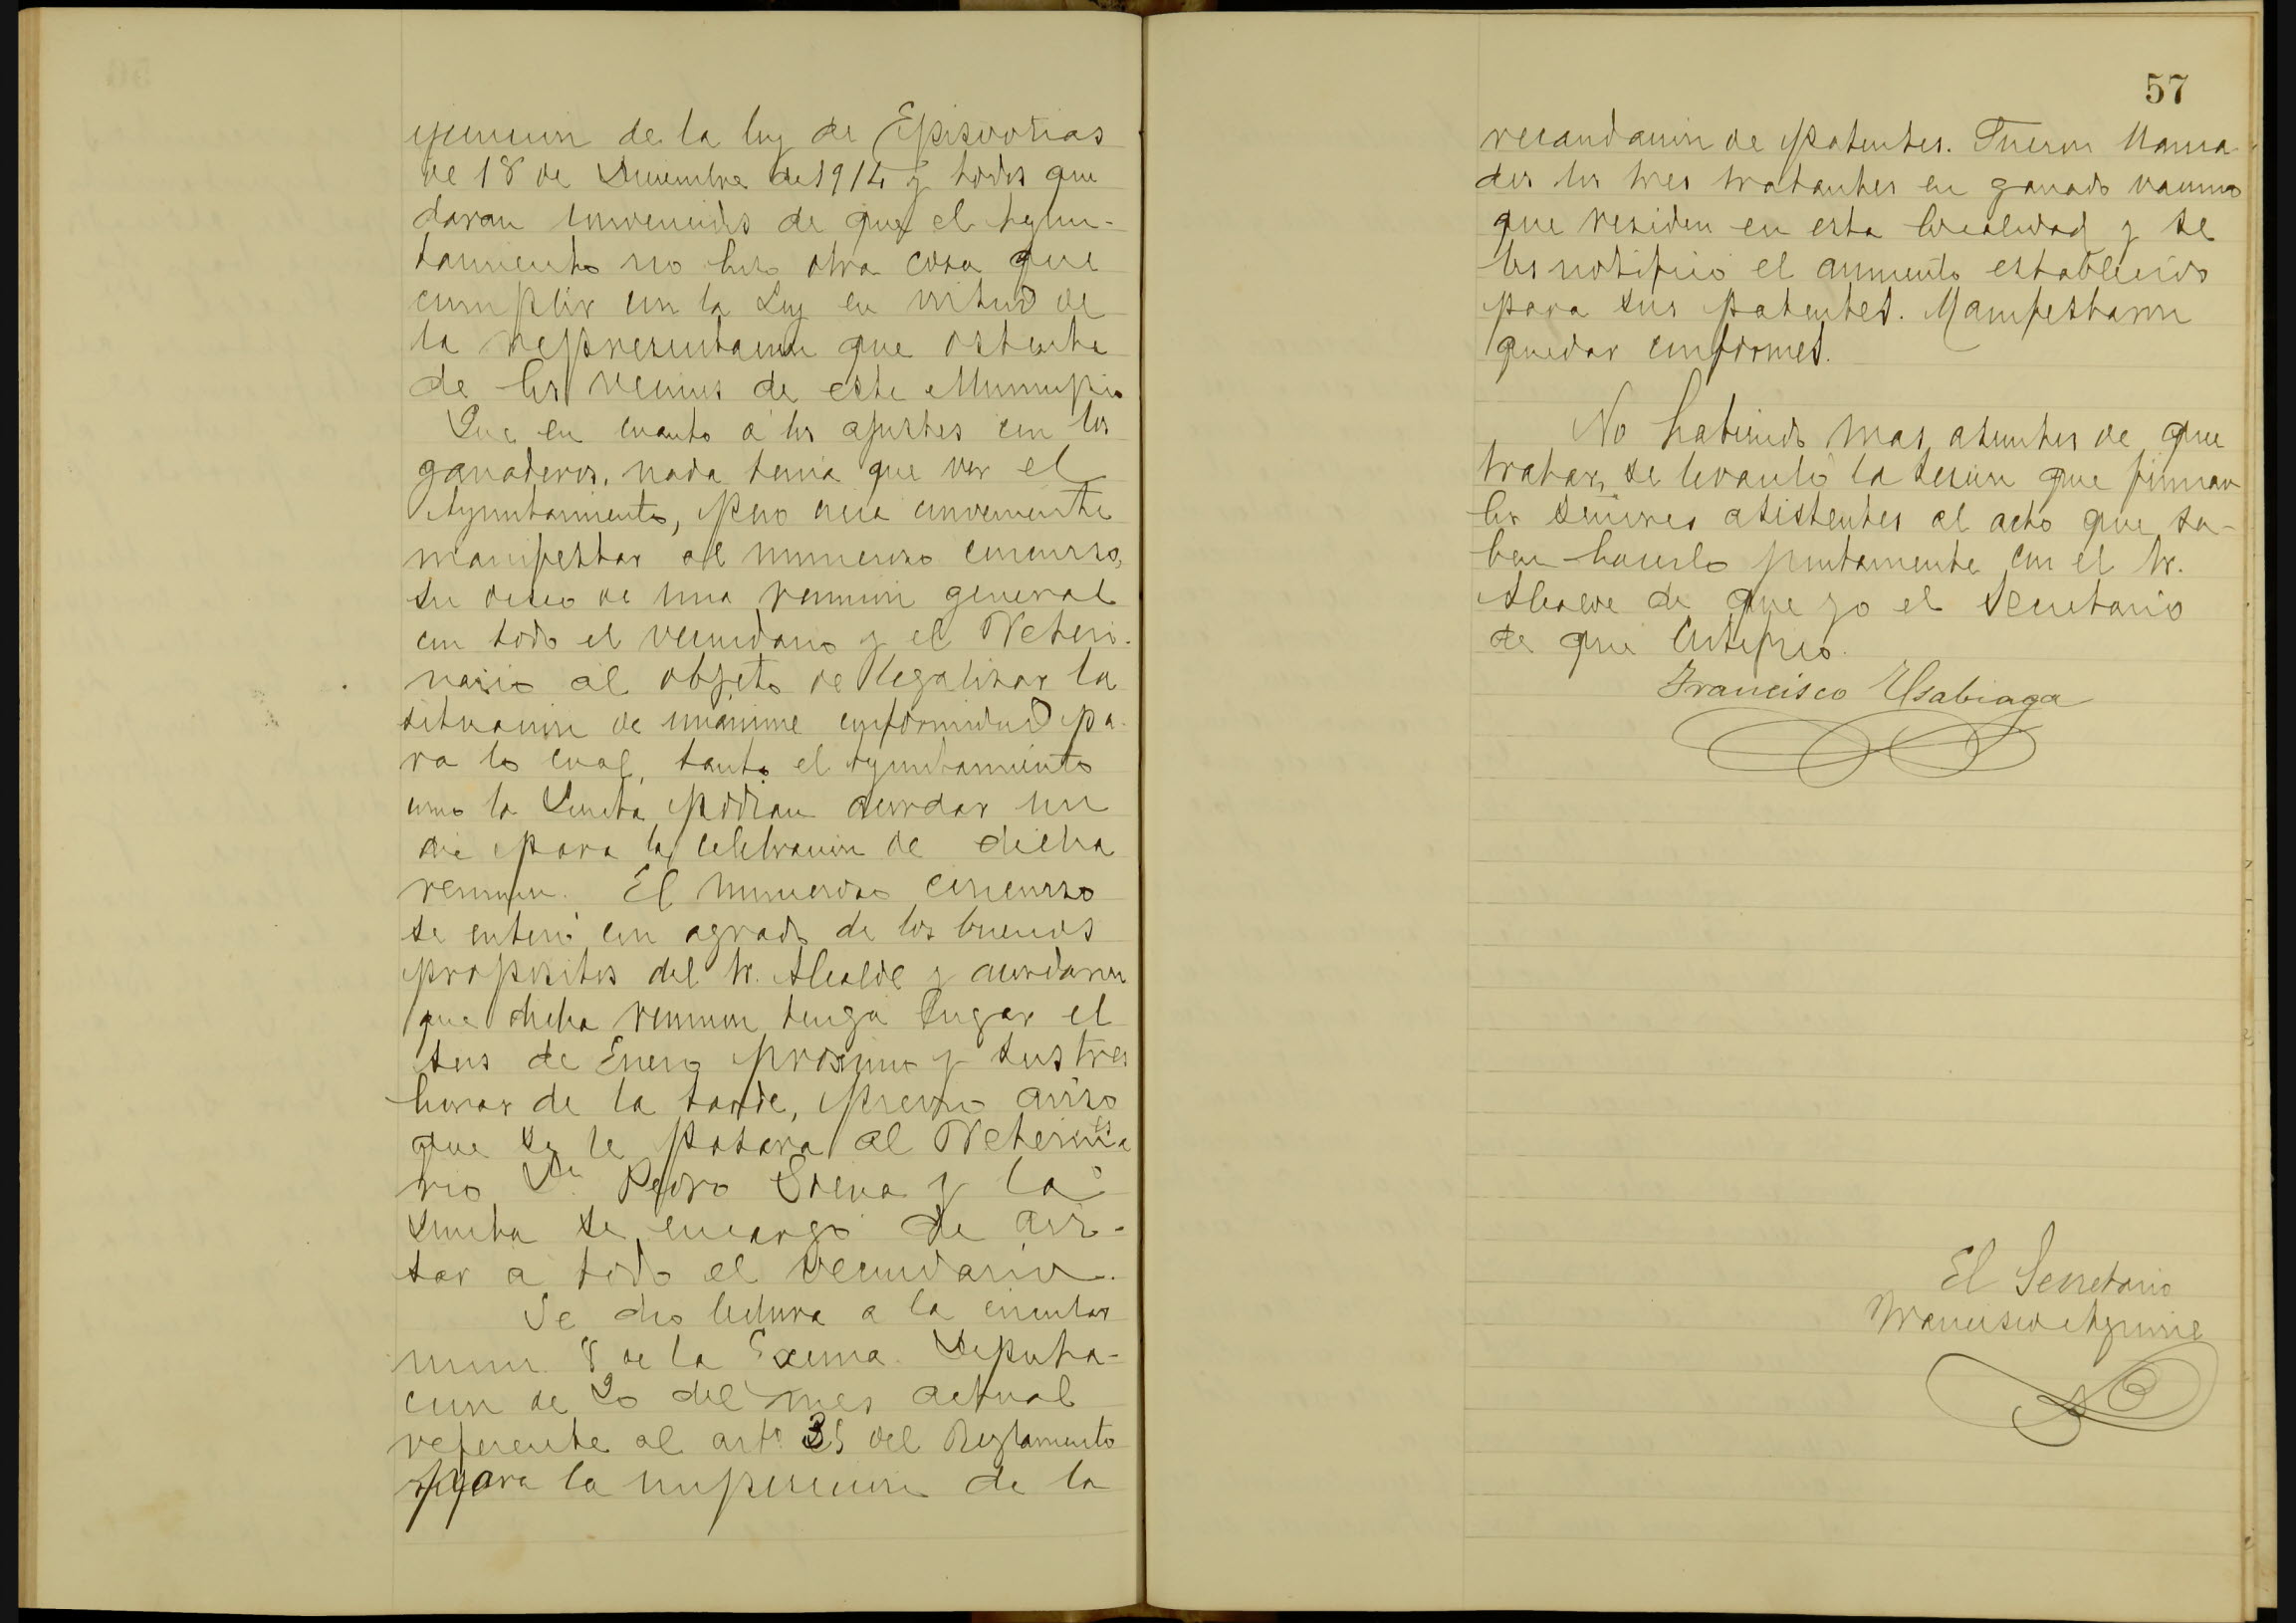 ejecucion de la ley de Episootias
de 18 de Diciembre de 1914 y todos que
daran convencidos de que el Ayun-
tamiento no hiso otra cosa que
cumplir con la Ley en virtud de
la representacion que ostenta
de los vecinos de este Municipio
Que en cuanto á los ajustes con los
ganaderos, nada tenia que ver el
Ayuntamiento, pero creia conveniente
manifestar al numeroso concurso,
su deseo de una reunion general
con todo el vecindario y el Veteri-
nario al objeto de legalisar la
situacion de unánime conformidad pa-
ra lo cual, tanto el Ayuntamiento
como la Junta podian acordar un
dia para la celebracion de dicha
reunion. El numeroso concurso
se enteró con agrado de los buenos
propositos del Sr. Alcalde y acordaron
que dicha reunion tenga lugar el
seis de Enero prosimo y sus tres
horas de la tarde, previo aviso
que se le pasara al Veterina
rio Dn Pedro y la
Junta se encargó de avi-
sar á todo el vecindario.
Se dio lectura a la circular
num. 8 de la Exema. Diputa-
cion de 20 del mes actual
referente al arto 35 del Reglamento
para la imposicion de la
57
recaudacion de patentes. Fueron llama-
dos los tres tratantes en ganado vacuno
que residen en esta localidad y se
les notificó el aumento establecido
para sus patentes. Manifestaron
quedar conformes.
No habiendo mas asuntos de que
tratar, se levantó la sesion que firman
los señores asistentes al acto que sa-
ben hacerlo juntamente con el Sr.
Alcalde de que yo el Secretario
de que certifico.
Francisco Usabiaga
El Secretario
Francisco Aguirre